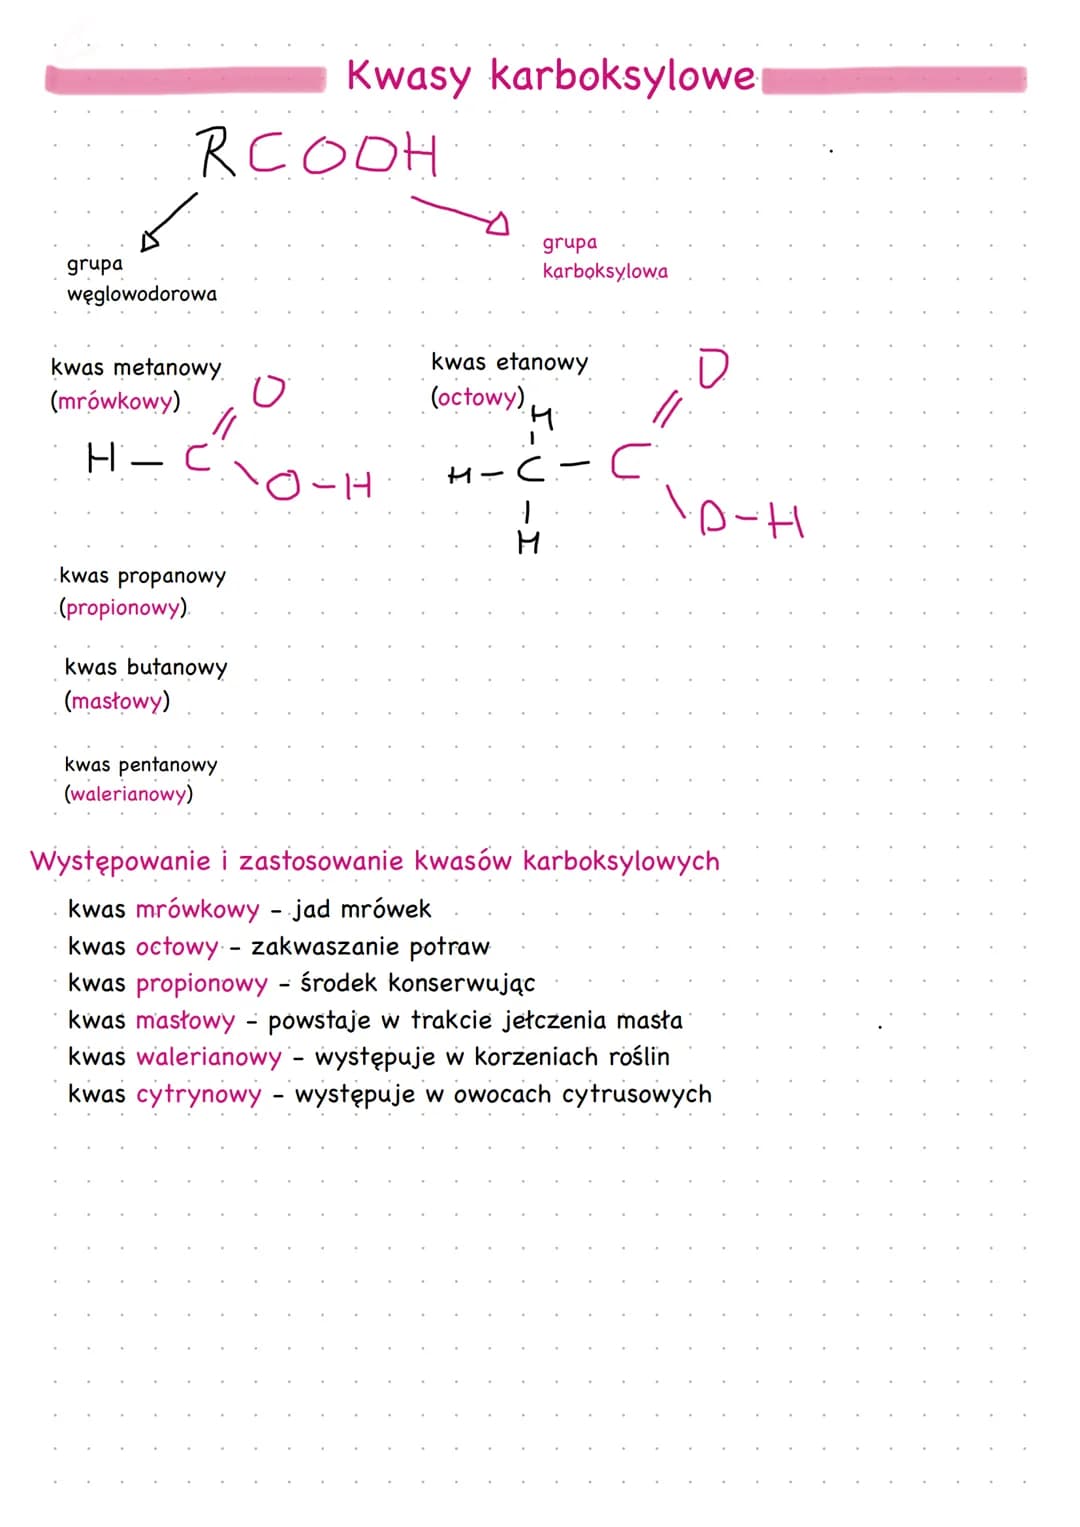 Kwasy karboksylowe
RCOOH
grupa
węglowodorowa
grupa
karboksylowa
kwas metanowy
(mrówkowy)
O
H – C
O – H
kwas etanowy
(octowy)
O
H
H – C – C
O – H
H
kwas propanowy
(propionowy)
kwas butanowy
(masłowy)
kwas pentanowy
(walerianowy)
Występowanie i zastosowanie kwasów karboksylowych
kwas mrówkowy - jad mrówek
kwas octowy - zakwaszanie potraw
kwas propionowy - środek konserwując
kwas masłowy - powstaje w trakcie jełczenia masła
kwas walerianowy - występuje w korzeniach roślin
kwas cytrynowy - występuje w owocach cytrusowych